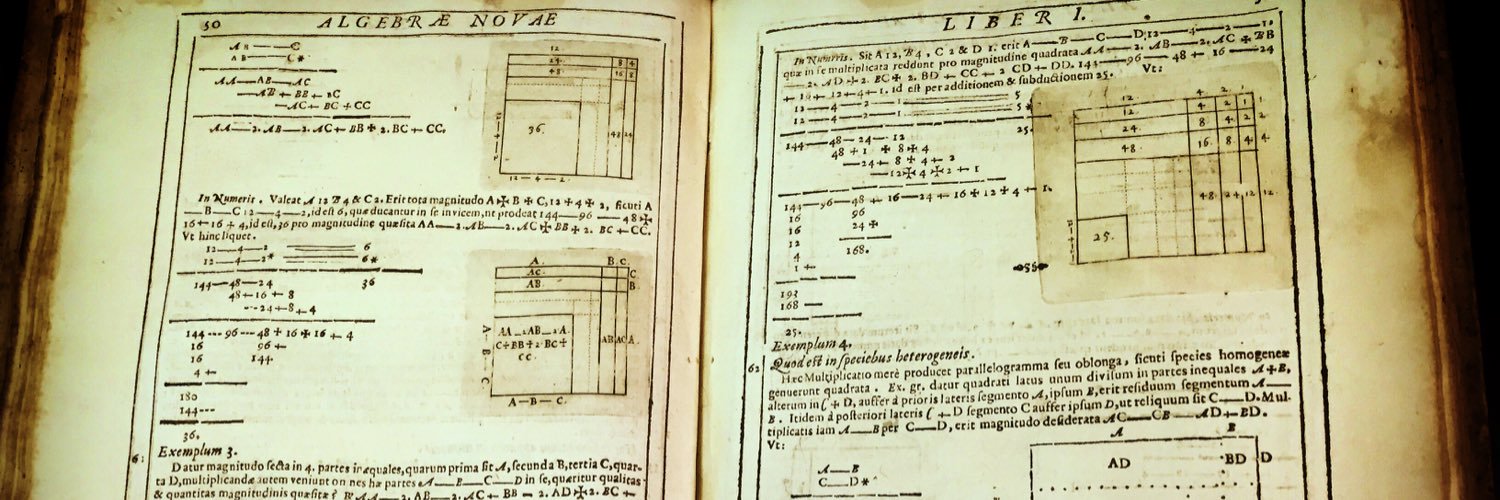 50
ALGEBRÆ NOVAE
AB——C
AB——C*
AA——AB——AC
——AB + BB + BC
——AC + BC + CC
AA——2. AB——2. AC + BB ✠ 2. BC + CC.
12
24. 8 4
48. 16 8
36. 48 24
12—4—2
12—4—2.
In Numeris. Valeat A 12 B 4 & C 2. Erit tota magnitudo A ✠ B ✠ C, 12 + 4 ✠ 2, sicuti A
——B——C 12——4——2, id est 6, quæ ducantur in se invicem, ut prodeat 144——96——48 ✠
16 + 16 + 4, id est, 36 pro magnitudine quæsita AA——2. AB——2. AC ✠ BB + 2. BC + CC.
Vt hinc liquet.
12——4——2 6
12——4——2* 6*
144——48——24 36
48 + 16 + 8
--- 24 + 8 + 4
144 --- 96 --- 48 + 16 ✠ 16 + 4
16 96 +
16 144.
4 +
180
144---
36.
A. B. C.
AC. C
AB. B
AA—2AB—2A
C+BB+2.BC+
CC.
AB AC A.
A—B—C
A—B—C.
Exemplum 3.
6:
Datur magnitudo secta in 4. partes inæquales, quarum prima sit A, secunda B, tertia C, quar-
ta D, multiplicandæ autem veniunt on nes hæ partes A——B——C——D in se, quæritur qualitas
& quantitas magnitudinis quæsitæ? AA——2. AB——2. AC + BB — 2. AD ✠ 2. BC +
LIBER I.
In Numeris. Sit A 12, B 4, C 2 & D 1. erit A——B——C——D, 12——4——2——1.
quæ in se multiplicata reddunt pro magnitudine quadrata AA——2. AB——2. AC ✠ BB
——2. AD ✠ 2. BC ✠ 2. BD + CC + 2 CD + DD. 144——96——48 + 16——24
+ 16 + 12 + 4 + 1. id est per additionem & subductionem 25. Vt:
12——4——2——1 5
12——4——2——1 5*
144——48——24——12 25.
48 + 1 ✠ 8 ✠ 4
——24 + 8 + 4 + 2
——12 ✠ 4 ✠ 2 + 1
144——96——48 + 16——24 + 16 ✠ 12 ✠ 4 + 1.
16 96
16 24 ✠
12 168.
4
1 +
193
168 ——
25.
4. 2. 1.
12. 4 2 1 1
24 8 4 2 2
48 16 8 4 4
48 24 12 12
25.
Exemplum 4.
Quod est in speciebus heterogeneis.
62 Hæc Multiplicatio merè producet parallelogramma seu oblonga, sicuti species homogeneæ
genuerunt quadrata. Ex. gr. datur quadrati latus unum divisum in partes inequales A + B,
alterum in C + D, auffer à prioris lateris segmento A, ipsum B, erit residuum segmentum A——
B. Itidem à posteriori lateris C + D segmento C auffer ipsum D, ut reliquum sit C——D. Mul-
tiplicatis iam A——B per C——D, erit magnitudo desiderata AC——CB——AD + BD.
Vt:
A——B
C——D*
A B
AD BD D